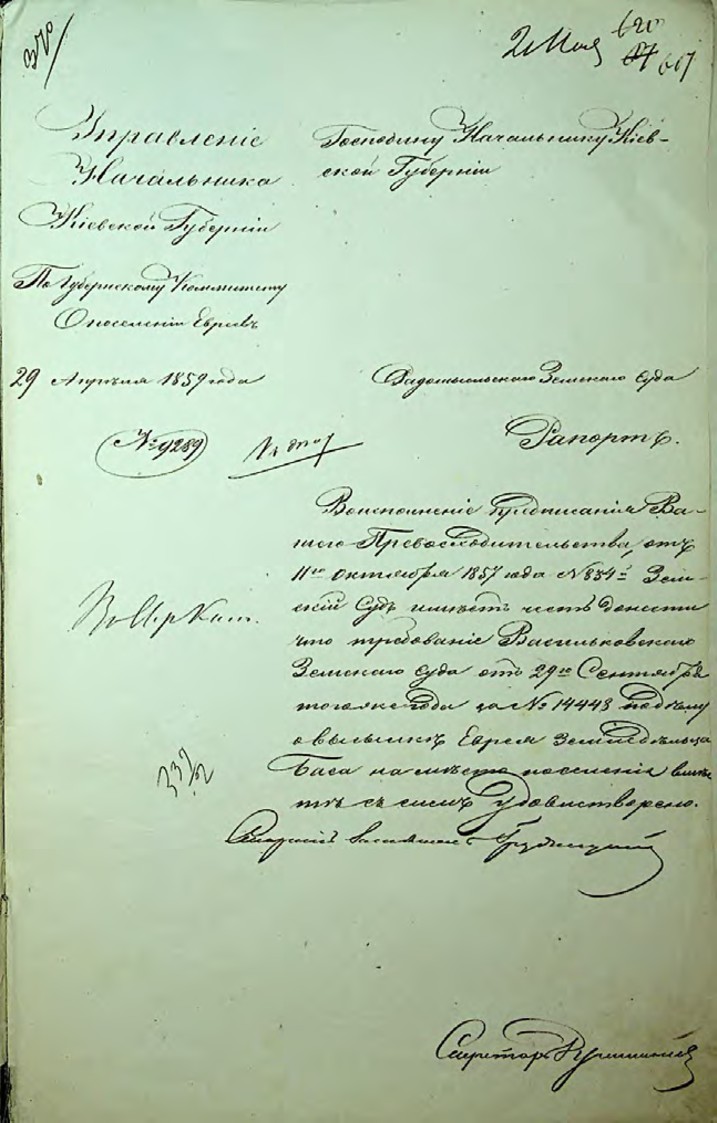 370
2 Мая 620
617
Управленіе
Начальника
Кіевской Губерніи
По Губернскому Коммитету
О поселеніи Евреевъ
29 Апрѣля 1859 года
№ 9289
Господину Начальнику Кіев-
ской Губерніи
Радомысльскаго Земскаго Суда
Рапортъ.
Воисполненіе предписанія Ва-
шего Превосходительства, отъ
11го октября 1857 года № 834й Зем-
скій Судъ имѣетъ честь донести
что требованіе Васильковскаго
Земскаго Суда отъ 29го Сентября
тогоже года за № 14448 подъему
о высылкѣ Еврея Земледѣльца
Баса на мѣсто поселенія вмѣс-
тѣ съ симъ Удовлетворено.
Старшій Засѣдатель
Секретарь